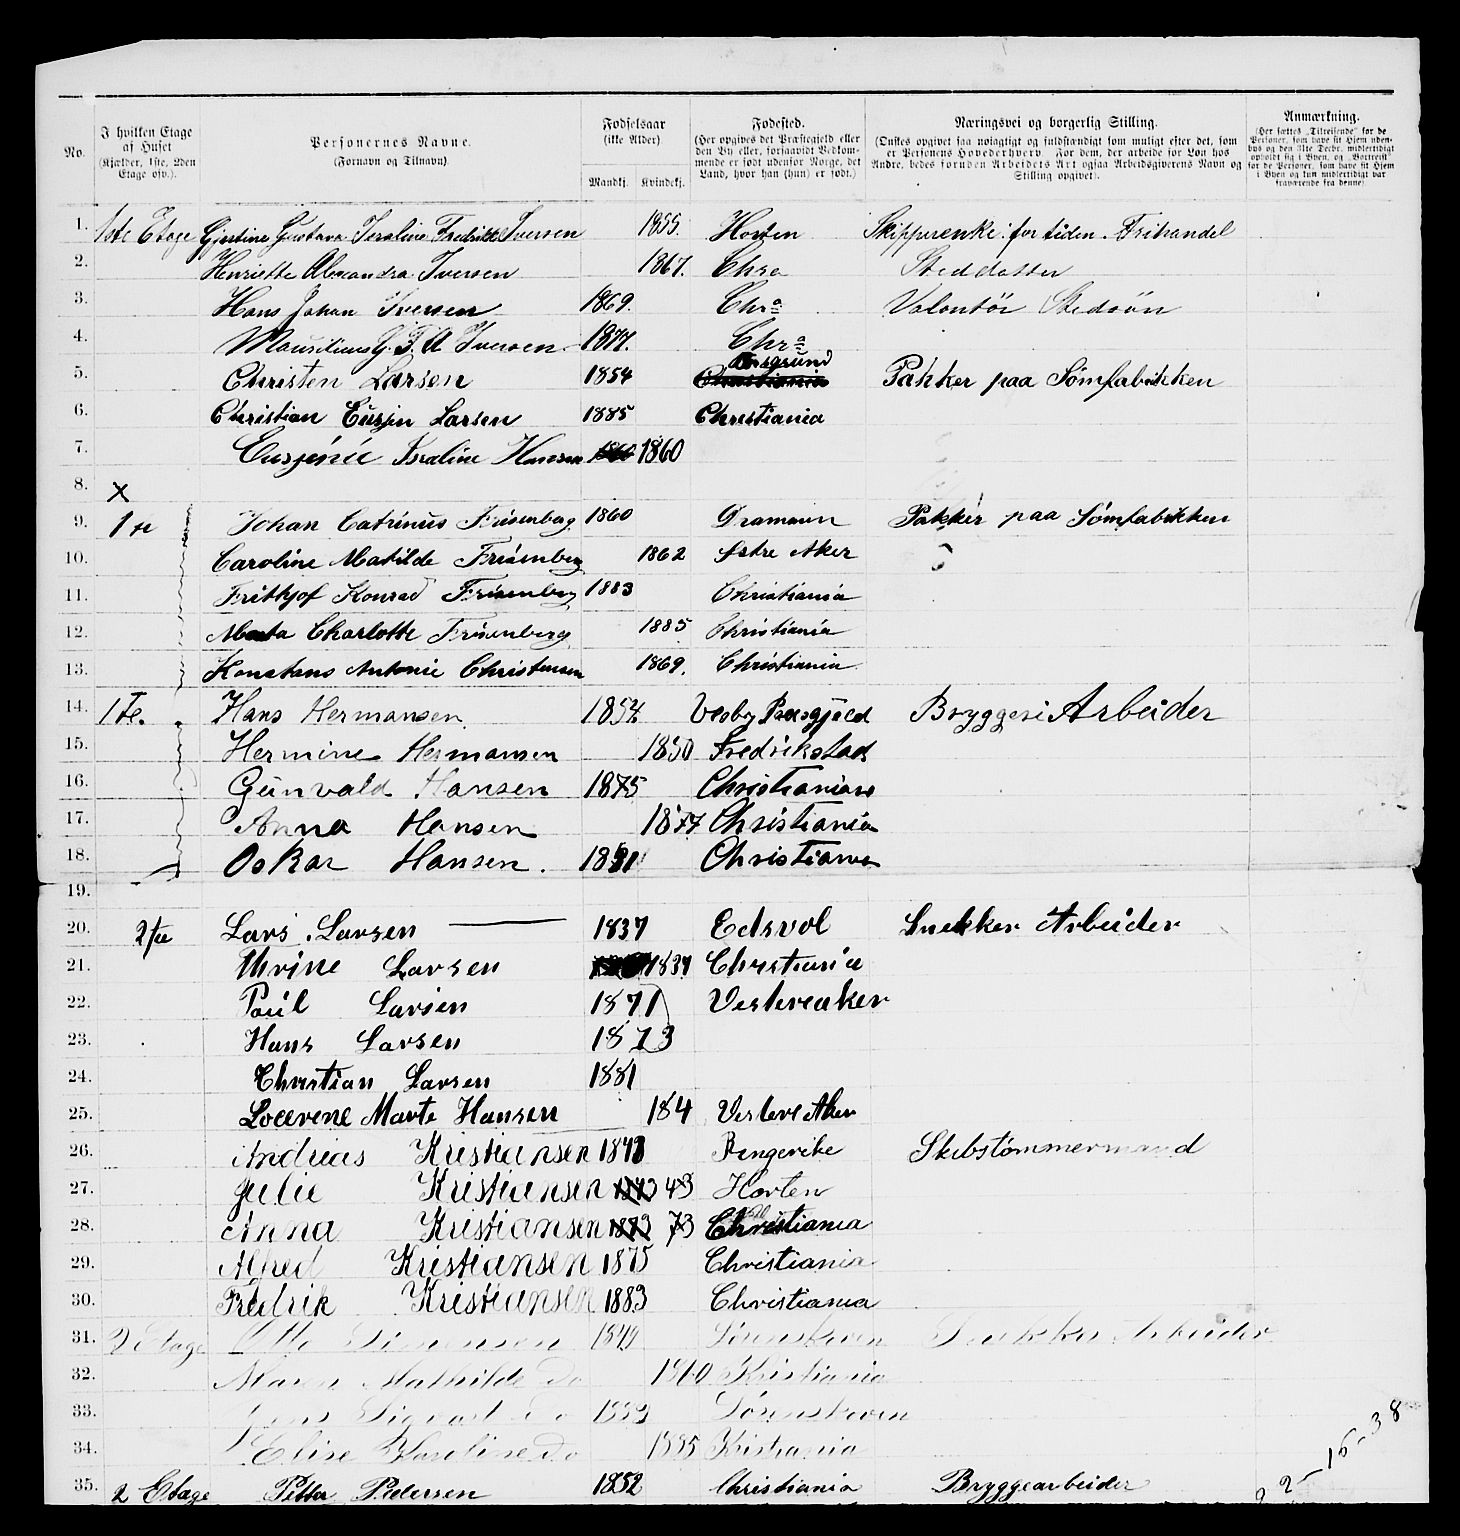 No. I hvilken Etage af Huset (Kjælder, 1ste, 2den Etage osv.). Personernes Navne. (Fornavn og Tilnavn). Fødselsaar (ikke Alder) Mandkj. Kvindekj. Fødested. (Her opgives det Præstegjeld eller den By eller, forsaavidt Vedkommende er født udenfor Norge, det Land, hvor han (hun) er født.) Næringsvei og borgerlig Stilling. (Ønskes opgivet saa nøiagtigt og fuldstændigt som muligt efter det, som er Personens Hovederhverv. For dem, der arbeide for Løn hos Andre, bedes foruden Arbeidets Art ogsaa Arbeidsgiverens Navn og Stilling opgivet). Anmerkning. (Her sættes „Tilreisende“ for de Personer, som have sit Hjem udenbys og den 31te Decbr. midlertidigt opholdt sig i Byen, og „Bortreist“ for de Personer, som have sit Hjem i Byen og kun midlertidigt var fraværende fra denne)
1. 1ste Etage Gjertine Gustava Iseline Fredrikke Iversen 1855. Horten Skipperenke: for tiden. Frihandel
2. Henriette Alexandra Iversen 1867. Chra Steddatter
3. Hans Johan Iversen 1869. Chra Volontør Stedsøn
4. G. F. A Iversen 1877. Chra
5. Christen Larsen 1854 Pakker paa Sømfabrikken
6. Christian Eusjen Larsen 1885 Christiania
7. Hansen 1860
8. X
9. 1te Johan Catrinus Frisenberg 1860 Drammen Pakker paa Sømfabrikken
10. Caroline Matilde Frisenberg 1862 Østre Aker
11. Frithjof Konrad Frisenberg 1883 Christiania
12. Charlotte Frisenberg 1885 Christiania
13. Konstans Antonie Christensen 1869. Christiania
14. 1te. Hans Hermansen 1854 Vesby Bryggeri Arbeider
15. Hermine Hermansen 1850 Fredrikstad
16. Gunvald Hansen 1875 Christiania
17. Anna Hansen 1877 Christiania
18. Oskar Hansen. 1881 Christiania
19.
20. 2te Lars Larsen 1837 Edsvol Snekker Arbeider
21. Thrine Larsen 1837 Christiania
22. Paul Larsen 1871 Vestreaker
23. Hans Larsen 1873
24. Christian Larsen 1881
25. Marte Hansen 184 Vestre Aker
26. Andreas Kristiansen 1848 Ringerike Skibstømmermand
27. Julie Kristiansen 1843 43 Horten
28. Anna Kristiansen 1873 73 Christiania
29. Alfred Kristiansen 1875 Christiania
30. Fredrik Kristiansen 1883 Christiania
31. 2 Etage Otto Simensen 1849 Snekker Arbeider
32. Maren Mathilde Do 1860 Kristiania
33. Jens Sigvart Do 1883
34. Elise Karoline Do 1885 Kristiania
35. 2 Etage Petter Pedersen 1852 Christiania Bryggearbeider
2-16-38